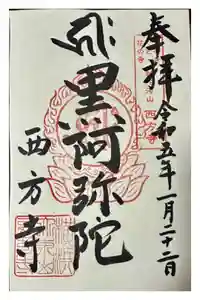 奉拝
令和五年一月二十二日
黒阿弥陀
西方寺